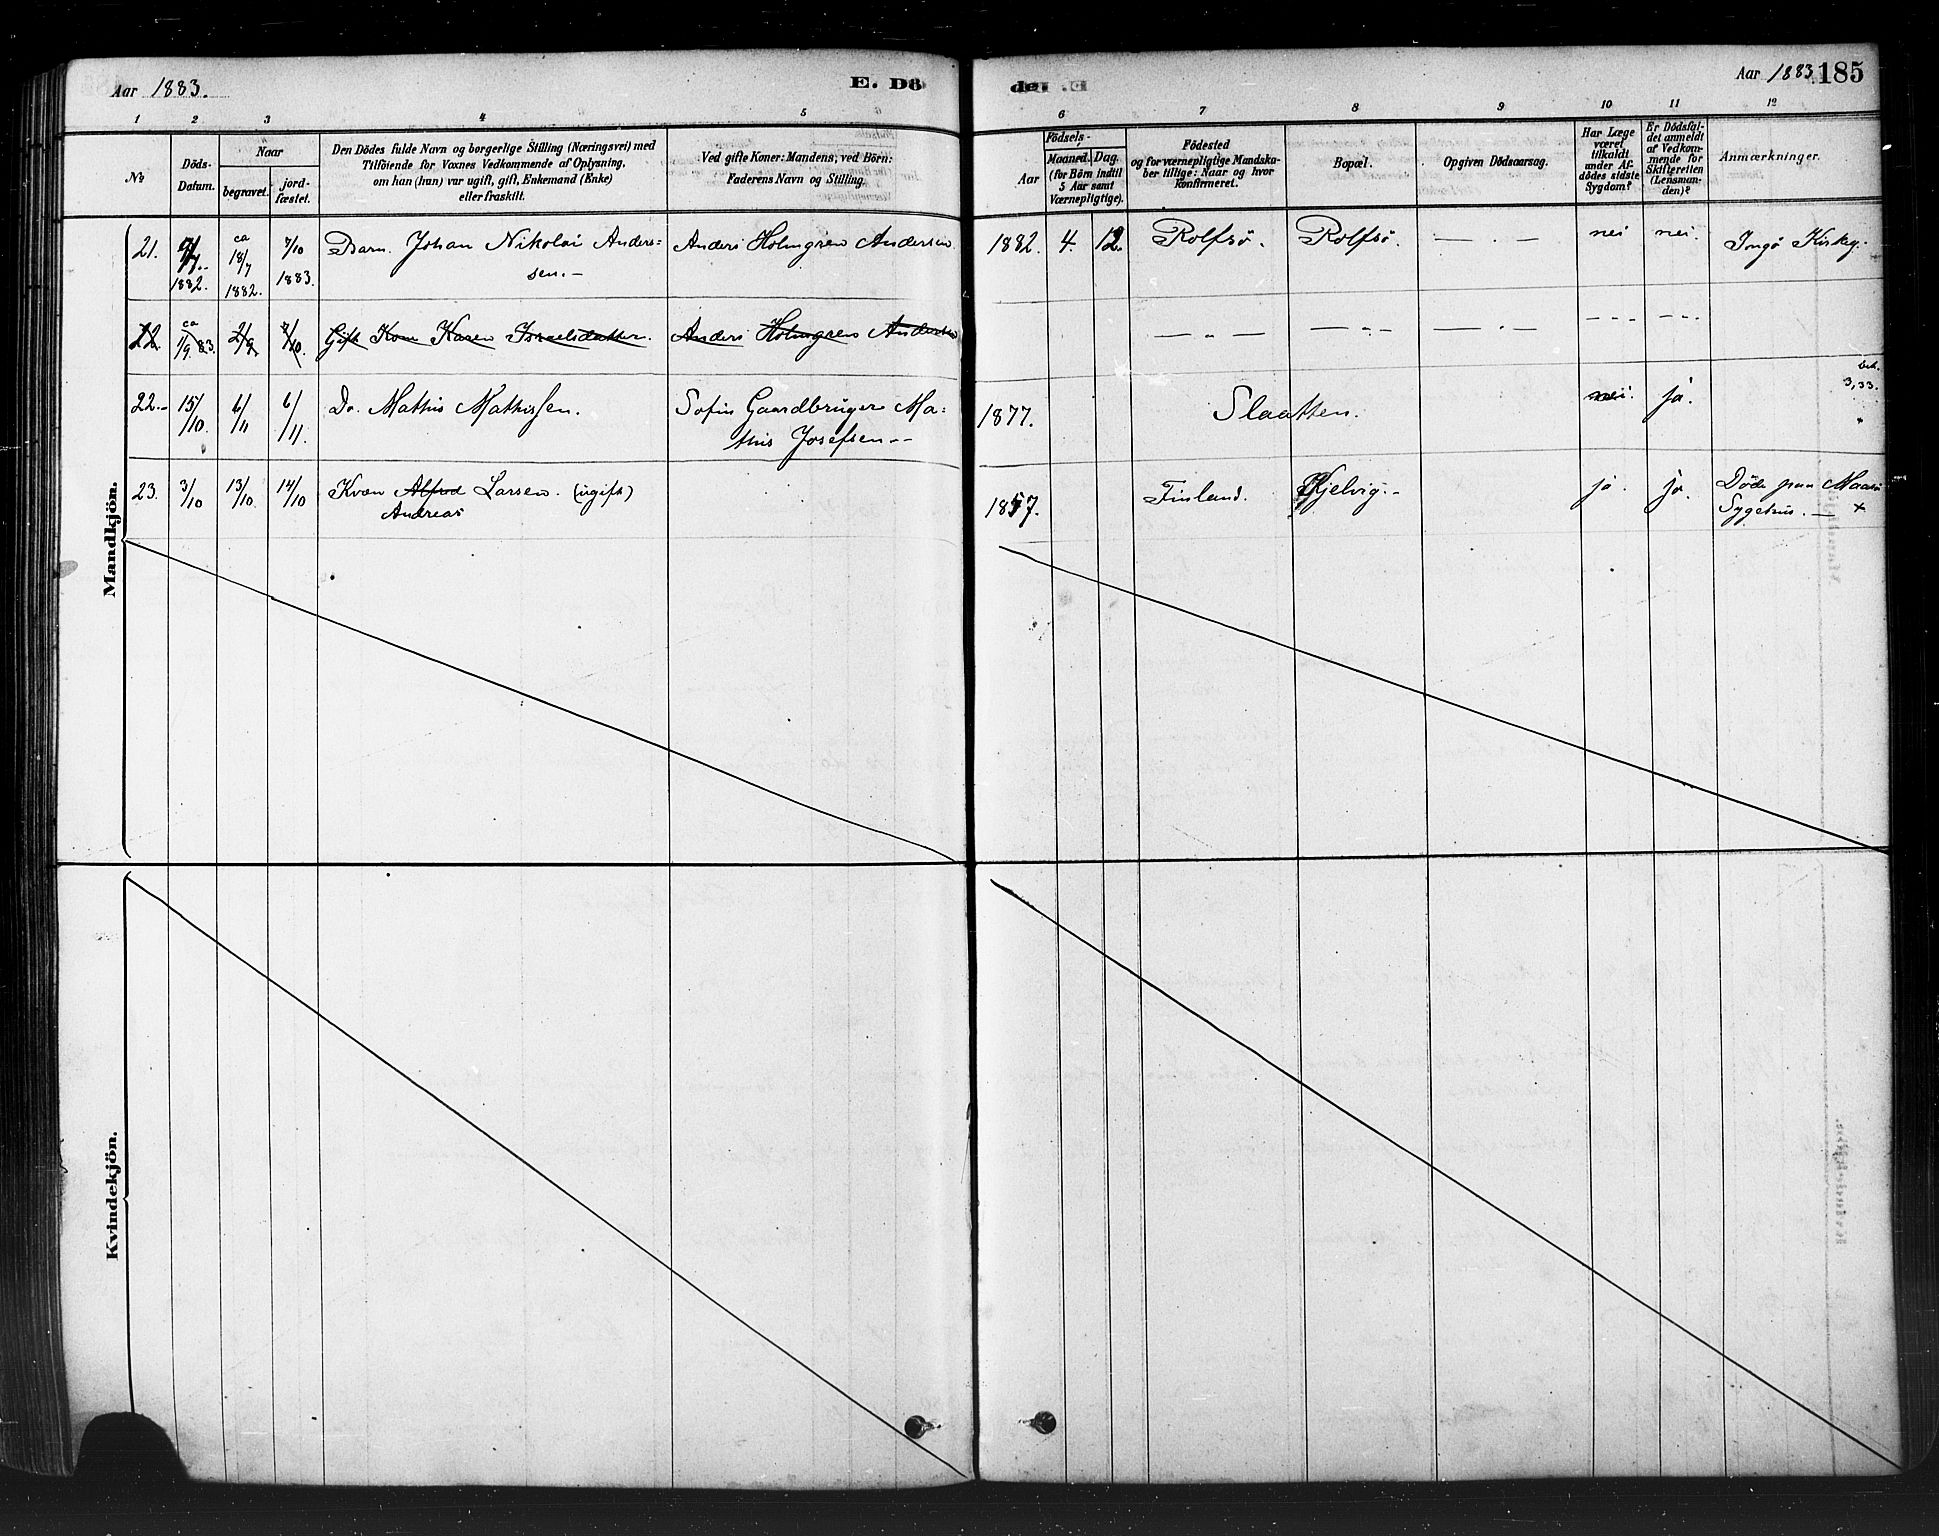 Aar 1883.
E. Dö
den
Aar 1883 185
1 2 3 4 5 6 7 8 9 10 11 12
No
Döds-
Datum.
Naar
begravet.
jord-
fæstet.
Den Dödes fulde Navn og borgerlige Stilling (Næringsvei) med
Tilföiende for Voxnes Vedkommende af Oplysning,
om han (hun) var ugift, gift, Enkemand (Enke)
eller fraskilt.
Ved gifte Koner: Mandens, ved Börn:
Faderens Navn og Stilling.
Födsels-
Aar
Maaned. Dag.
(for Börn indtil
5 Aar samt
Værnepligtige).
Födested
og for værnepligtige Mandska-
ber tillige: Naar og hvor
konfirmeret.
Bopæl.
Opgiven Dödsaarsag.
Har Læge
været
tilkaldt
under Af-
dødes sidste
Sygdom?
Er Dödsfal-
det anmeldt
af Vedkom-
mende for
Skifteretten
(Lensman-
den)?
Anmærkninger.
Mandkjön.
21. 1882. ca 18/7 1882. 7/10 1883. Barn. Johan Nikolai Anders=
sen.-
Anders Holmgren Andersen
1882. 4. 12. Rolfsö. Rolfsö. — . — nei nei. Ingö Kirkeg.
22. ca 1/9 83. 2/9 7/10. Gift Kone Karen Israelsdatter. Anders Holmgren Andersen
22.- 15/10. 6/11 6/11. Do. Mathis Mathissen. Søfin Gaardbruger Ma=
this Josefsen--
1877. Slaatten. nei. ja. 3,33.
23. 3/10 13/10. 14/10 Kvæn Alfred Larsen. (ugift)
Andreas
1857. Finland. Gjelvig.- ja. ja. Døde paa Maasø
Sygehus. — x
Kvindekjön.